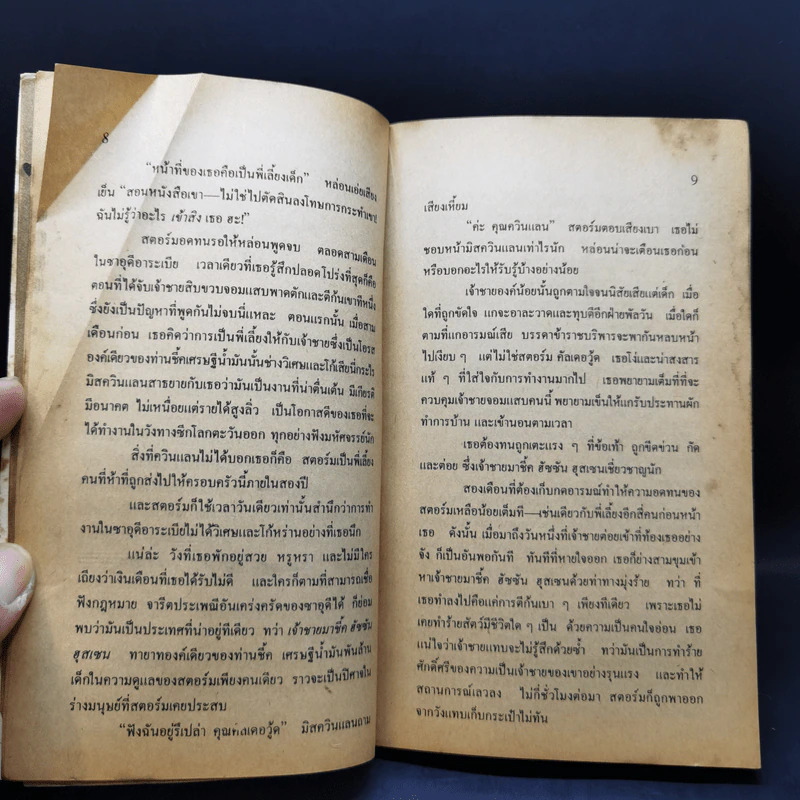 8
“หน้าที่ของเธอคือเป็นพี่เลี้ยงเด็ก” หล่อนเอ่ยเสียง
เย็น “สอนหนังสือเขา—ไม่ใช่ไปตัดสินลงโทษการกระทำเขา!
ฉันไม่รู้ว่าอะไร เข้าสิง เธอ ฮะ!”
สตอร์มอดทนรอให้หล่อนพูดจบ ตลอดสามเดือน
ในซาอุดีอาระเบีย เวลาเดียวที่เธอรู้สึกปลอดโปร่งที่สุดก็คือ
ตอนที่ได้จับเจ้าชายสิบขวบจอมแสบพาดตักและตีก้นเขาทีหนึ่ง
ซึ่งยังเป็นปัญหาที่พูดกันไม่จบนี่แหละ ตอนแรกนั้น เมื่อสาม
เดือนก่อน เธอคิดว่าการเป็นพี่เลี้ยงให้กับเจ้าชายซึ่งเป็นโอรส
องค์เดียวของท่านชี้คเศรษฐีน้ำมันนั้นช่างวิเศษและโก้เสียนี่กระไร
มิสควินแลนสาธยายกับเธอว่ามันเป็นงานที่น่าตื่นเต้น มีเกียรติ
มีอนาคต ไม่เหนื่อยแต่รายได้สูงลิ่ว เป็นโอกาสดีของเธอที่จะ
ได้ทำงานในวังทางซีกโลกตะวันออก ทุกอย่างฟังมหัศจรรย์นัก
สิ่งที่ควินแลนไม่ได้บอกเธอก็คือ สตอร์มเป็นพี่เลี้ยง
คนที่ห้าที่ถูกส่งไปให้ครอบครัวนี้ภายในสองปี
และสตอร์มก็ใช้เวลาวันเดียวเท่านั้นสำนึกว่าการทำ
งานในซาอุดีอาระเบียไม่ได้วิเศษและโก้หร่านอย่างที่เธอนึก
แน่ล่ะ วังที่เธอพักอยู่สวย หรูหรา และไม่มีใคร
เถียงว่าเงินเดือนที่เธอได้รับไม่ดี และใครก็ตามที่สามารถเชื่อ
ฟังกฎหมาย จารีตประเพณีอันเคร่งครัดของซาอุดีได้ ก็ย่อม
พบว่ามันเป็นประเทศที่น่าอยู่ทีเดียว ทว่า เจ้าชายมาชี้ค ฮัซซัน
ฮุสเซน ทายาทองค์เดียวของท่านชี้ค เศรษฐีน้ำมันพันล้าน
เด็กในความดูแลของสตอร์มเพียงคนเดียว ราวจะเป็นปีศาจใน
ร่างมนุษย์ที่สตอร์มเคยประสบ
“ฟังฉันอยู่รึเปล่า คุณคัลเดอวู้ด” มิสควินแลนถาม
9
เสียงเหี้ยม
“ค่ะ คุณควินแลน” สตอร์มตอบเสียงเบา เธอไม่
ชอบหน้ามิสควินแลนเท่าไรนัก หล่อนน่าจะเตือนเธอก่อน
หรือบอกอะไรให้รับรู้บ้างอย่างน้อย
เจ้าชายองค์น้อยนั้นถูกตามใจจนนิสัยเสียแต่เด็ก เมื่อ
ใดที่ถูกขัดใจ แกจะอาละวาดและทุบตีอีกฝ่ายพัลวัน เมื่อใดก็
ตามที่แกอารมณ์เสีย บรรดาข้าราชบริพารจะพากันหลบหน้า
ไปเงียบ ๆ แต่ไม่ใช่สตอร์ม คัลเดอวู้ด เธอโง่และน่าสงสาร
แท้ ๆ ที่ใส่ใจกับการทำงานมากไป เธอพยายามเต็มที่ที่จะ
ควบคุมเจ้าชายจอมแสบคนนี้ พยายามเข็นให้แกรับประทานผัก
ทำการบ้าน และเข้านอนตามเวลา
เธอต้องทนถูกเตะแรง ๆ ที่ข้อเท้า ถูกขีดข่วน กัด
และต่อย ซึ่งเจ้าชายมาชี้ค ฮัซซัน ฮุสเซนเชี่ยวชาญนัก
สองเดือนที่ต้องเก็บกดอารมณ์ทำให้ความอดทนของ
สตอร์มเหลือน้อยเต็มที—เช่นเดียวกับพี่เลี้ยงอีกสี่คนก่อนหน้า
เธอ ดังนั้น เมื่อมาถึงวันหนึ่งที่เจ้าชายต่อยเข้าที่ท้องเธออย่าง
จัง ก็เป็นอันพอกันที ทันทีที่หายใจออก เธอก็ย่างสามขุมเข้า
หาเจ้าชายมาชี้ค ฮัซซัน ฮุสเซนด้วยท่าทางมุ่งร้าย ทว่า ที่
เธอทำลงไปคือแค่การตีก้นเบา ๆ เพียงทีเดียว เพราะเธอไม่
เคยทำร้ายสัตว์มีชีวิตใด ๆ เป็น ด้วยความเป็นคนใจอ่อน เธอ
แน่ใจว่าเจ้าชายแทบจะไม่รู้สึกด้วยซ้ำ ทว่ามันเป็นการทำร้าย
ศักดิ์ศรีของความเป็นเจ้าชายของเขาอย่างรุนแรง และทำให้
สถานการณ์เลวลง ไม่กี่ชั่วโมงต่อมา สตอร์มก็ถูกพาออก
จากวังแทบเก็บกระเป๋าไม่ทัน